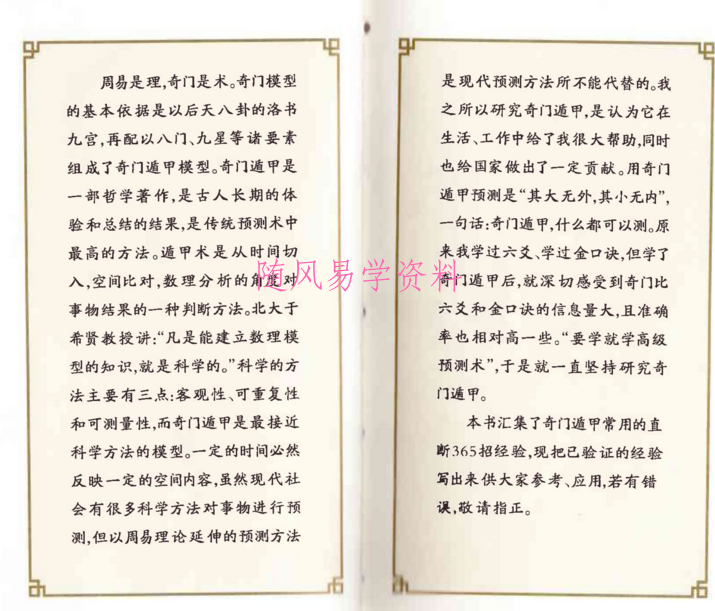 周易是理,奇门是术。奇门模型
的基本依据是以后天八卦的洛书
九宫,再配以八门、九星等诸要素
组成了奇门遁甲模型。奇门遁甲是
一部哲学著作,是古人长期的体
验和总结的结果,是传统预测术中
最高的方法。遁甲术是从时间切
入,空间比对,数理分析的角度对
事物结果的一种判断方法。北大于
希贤教授讲:“凡是能建立数理模
型的知识,就是科学的。”科学的方
法主要有三点:客观性、可重复性
和可测量性,而奇门遁甲是最接近
科学方法的模型。一定的时间必然
反映一定的空间内容,虽然现代社
会有很多科学方法对事物进行预
测,但以周易理论延伸的预测方法
是现代预测方法所不能代替的。我
之所以研究奇门遁甲,是认为它在
生活、工作中给了我很大帮助,同时
也给国家做出了一定贡献。用奇门
遁甲预测是“其大无外,其小无内”,
一句话:奇门遁甲,什么都可以测。原
来我学过六爻、学过金口诀,但学了
奇门遁甲后,就深切感受到奇门比
六爻和金口诀的信息量大,且准确
率也相对高一些。“要学就学高级
预测术”,于是就一直坚持研究奇
门遁甲。
本书汇集了奇门遁甲常用的直
断365招经验,现把已验证的经验
写出来供大家参考、应用,若有错
误,敬请指正。
随风易学资料